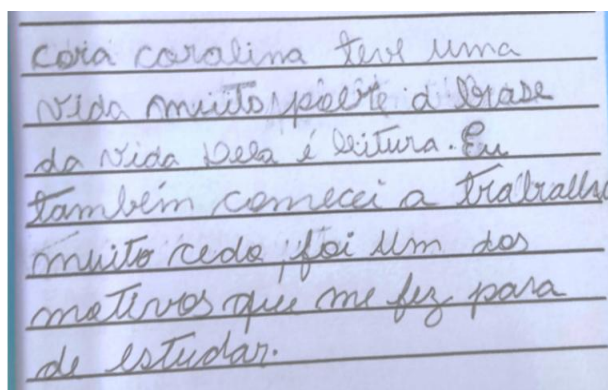 cora coralina teve uma
vida muito pobre a brase
da vida dela é leitura. Eu
também comecei a trabralha
muito cedo, foi um dos
motivos que me fez para
de estudar.